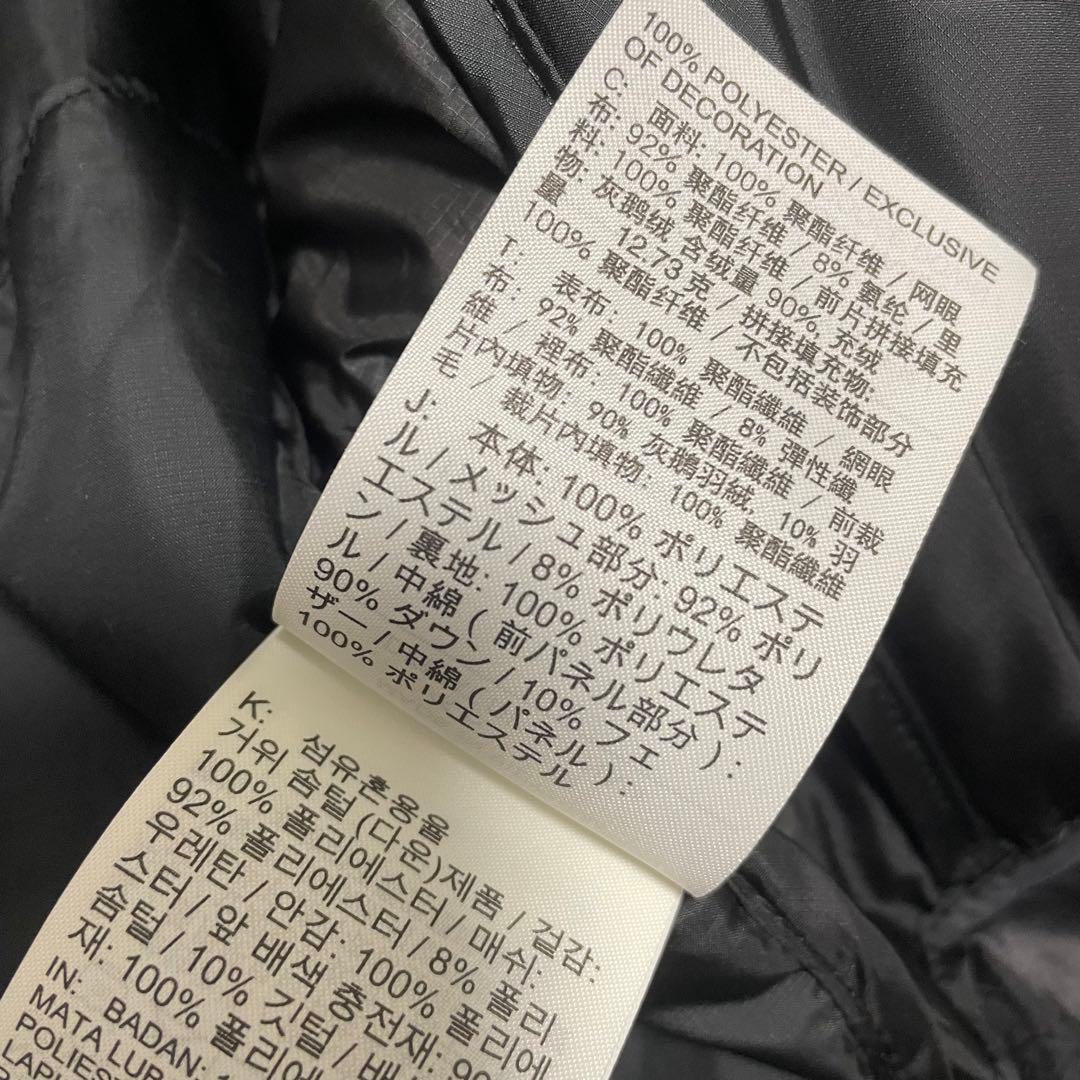 100% POLYESTER / EXCLUSIVE
OF DECORATION
C: 面料: 100% 聚酯纤维 / 网眼
布: 92% 聚酯纤维 / 8% 氨纶 / 里
料: 100% 聚酯纤维 / 前片拼接填充
物: 灰鹅绒 含绒量 90%, 充绒
量 12.73 克 / 拼接填充物:
100% 聚酯纤维 / 不包括装饰部分
T: 表布: 100% 聚酯纖維 / 網眼
布: 92% 聚酯纖維 / 8% 彈性纖
維 / 裡布: 100% 聚酯纖維 / 前裁
片內填物: 90% 灰鵝羽絨, 10% 羽
毛 / 裁片內填物: 100% 聚酯纖維
J: 本体: 100% ポリエステ
ル / メッシュ部分: 92% ポリ
エステル / 8% ポリウレタ
ン / 裏地: 100% ポリエステ
ル / 中綿 ( 前パネル部分 ) :
90% ダウン / 10% フェ
ザー / 中綿 ( パネル ) :
100% ポリエステル
K: 섬유혼용율
거위 솜털 (다운)제품 / 겉감:
100% 폴리에스터 / 매쉬:
92% 폴리에스터 / 8% 폴리
우레탄 / 안감: 100% 폴리에
스터 / 앞 배색 충전재: 90
솜털 / 10% 깃털 / 배
재: 100% 폴리에
IN: BADAN: 1
MATA LUB
POLIEST